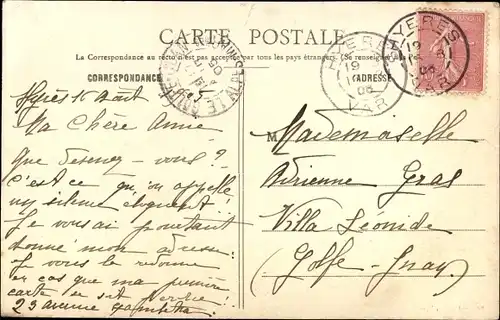 CARTE POSTALE
La Correspondance au recto n'est pas acceptée par tous les pays étrangers. (Se renseigner à la Poste)
CORRESPONDANCE
ADRESSE
HYERES
19
06
VAR
HYERES
19
06
VAR
Hyères 16 Août
Ma Chère Amie
Que devenez-vous?
C'est ce qu'on appelle
un silence éloquent!
Je vous ai pourtant
donné mon adresse.
Je vous la redonne
en cas que ma première
carte en soit
23 avenue Gambetta
M
Mademoiselle
Adrienne Gras
Villa Léonide
Golfe-Juan